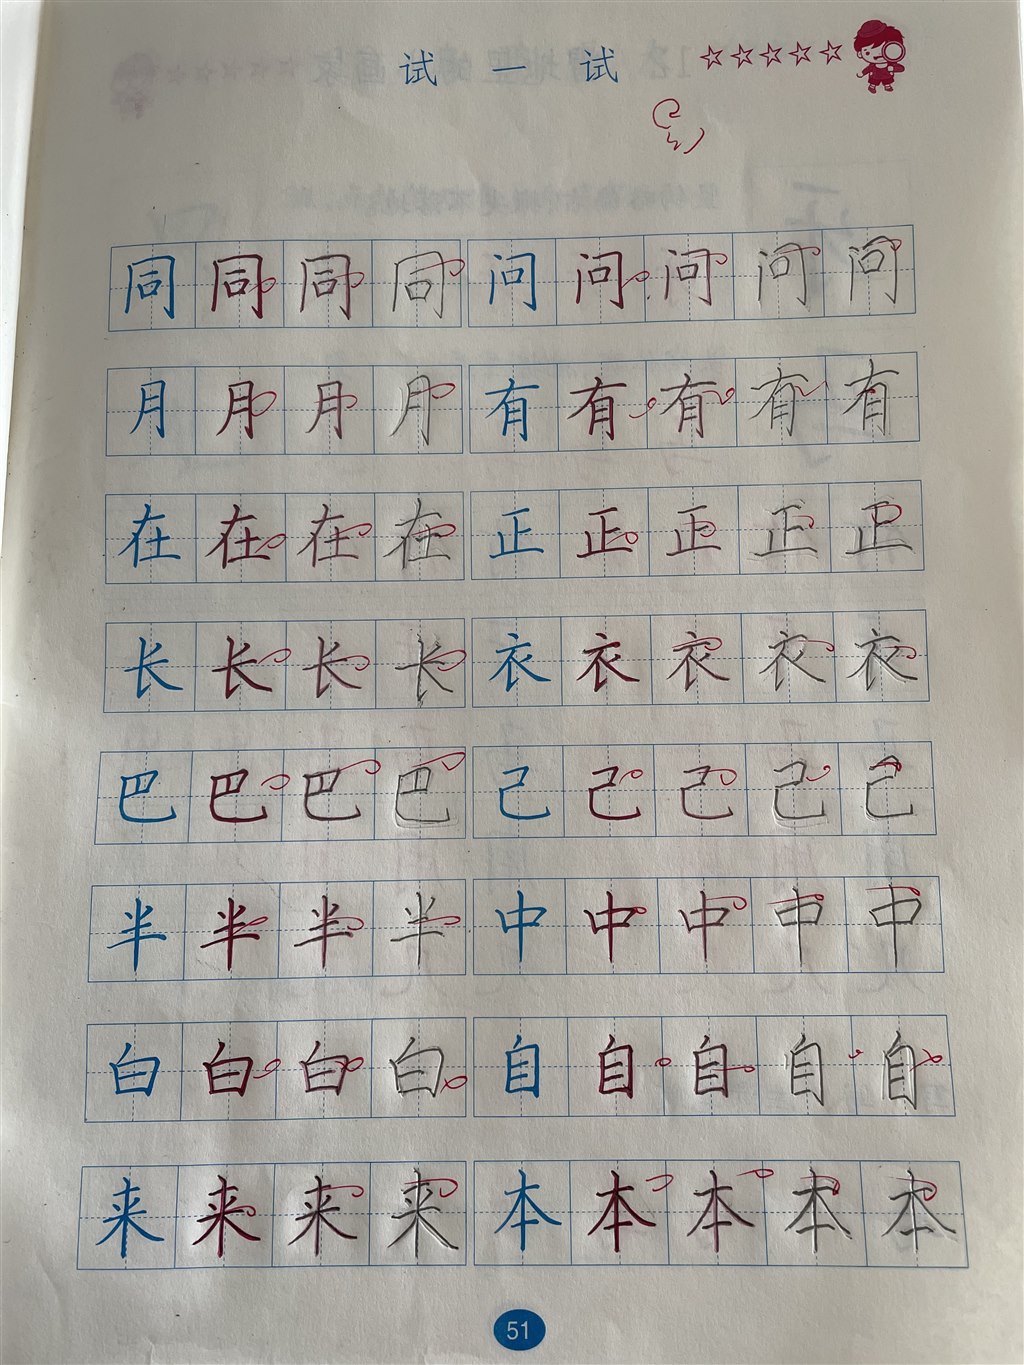 试一试 ☆☆☆☆☆
同同同同问问问问问
月月月月有有有有有
在在在在正正正正正
长长长长衣衣衣衣衣
巴巴巴巴己己己己己
半半半半中中中中中
白白白白自自自自自
来来来来本本本本本
51